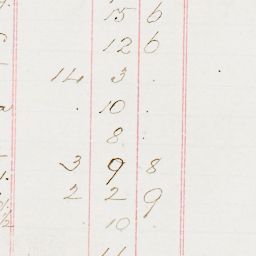 15 6
12 6
14 3 .
. 10 .
8
3 9 8
2 2 9
. 10 .